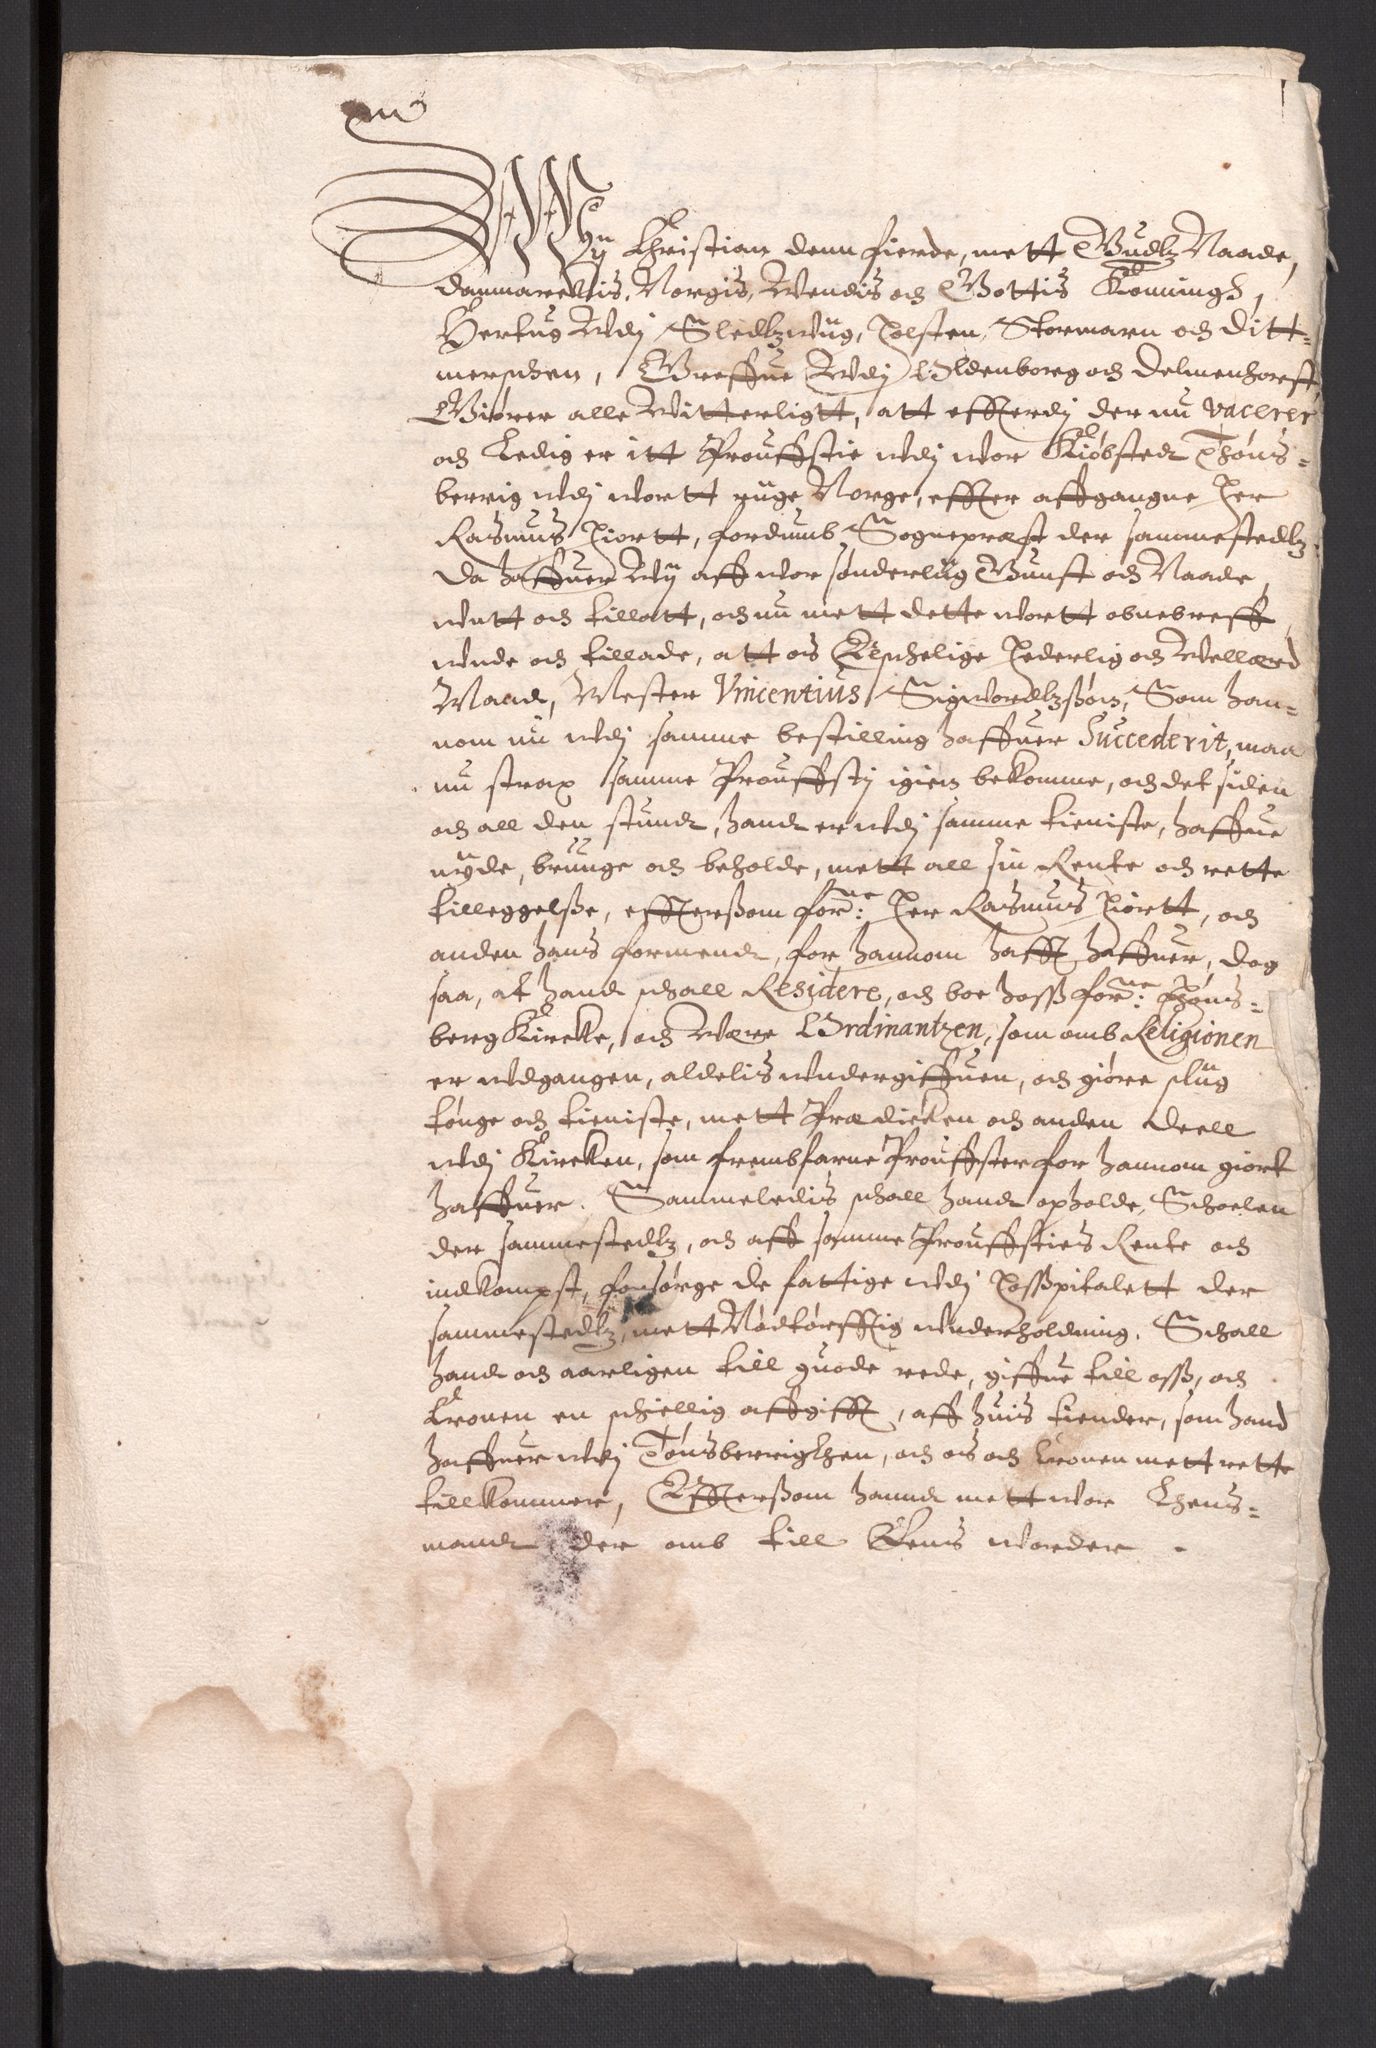 Wy Christian denn fierde, mett Gudtz Naade,
Danmarckis, Norgis, Wendis och Gottis Konningh,
Hertug Wdj Sledtzwiig, Holsten, Stormarn och Ditt-
merschen, Greffue Wdj Oldenborg och Delmenhorst,
Giører alle Witterligtt, att effterdj der nu vacerer
och Ledig er itt Prouffstie wdj wor Kiøbsted Thøns-
berrig wdj wortt riige Norge, effter affgangne Her
Rasmus Hiortt, fordumb Sognepræst der sammestedtz,
Da haffuer Wij aff wor sønderliig Gunst och Naade,
wntt och tillatt, och nu mett dette wortt obnebreff
wnde och tillade, att os Elschelige Hederlig och Wellærd
Mand, Mester Vincentius Sigwordtzßøn, Som han-
nom nu wdj samme bestilling haffuer Succederit, maa
nu strax samme Prouffstj igien bekomme, och det siden
och all den stundt, hand er wdj samme tieniste, haffue
nyde, bruuge och beholde, mett all sin Rente och rette
tilleggelße, effterßom forne: Her Rasmus Hiørtt, och
anden hans formend, for hannom hafft haffuer, dog
saa, at hand schall Residere, och boe hoss forne: Thøns-
berg Kircke, och Were Ordinantzen, som omb Religionen
er wdgangen, aldelis wndergiffuen, och giøre sliig
tonge och tieniste, mett Prædicken och anden deell
wdj Kircken, som frembfarne Prouffster for hannom giort
haffuer. Sammeledis schall hand opholde, Schoelen
der sammestedtz, och aff samme Prouffsties Rente och
indkompst, forsørge de fattige wdj Hosspitalett der
sammestedtz, mett Nødtørfftig wnderholdning. Schall
hand och aarligen till guode rede, giffue till oss, och
Cronen en schiellig affgifft, aff huis tiender, som hand
haffuer wdj Tønsberriglhen, och os och Cronen mett rette
tillkommer, Effterßom hannd mett wor Lhens-
mand der omb till Eens worder.